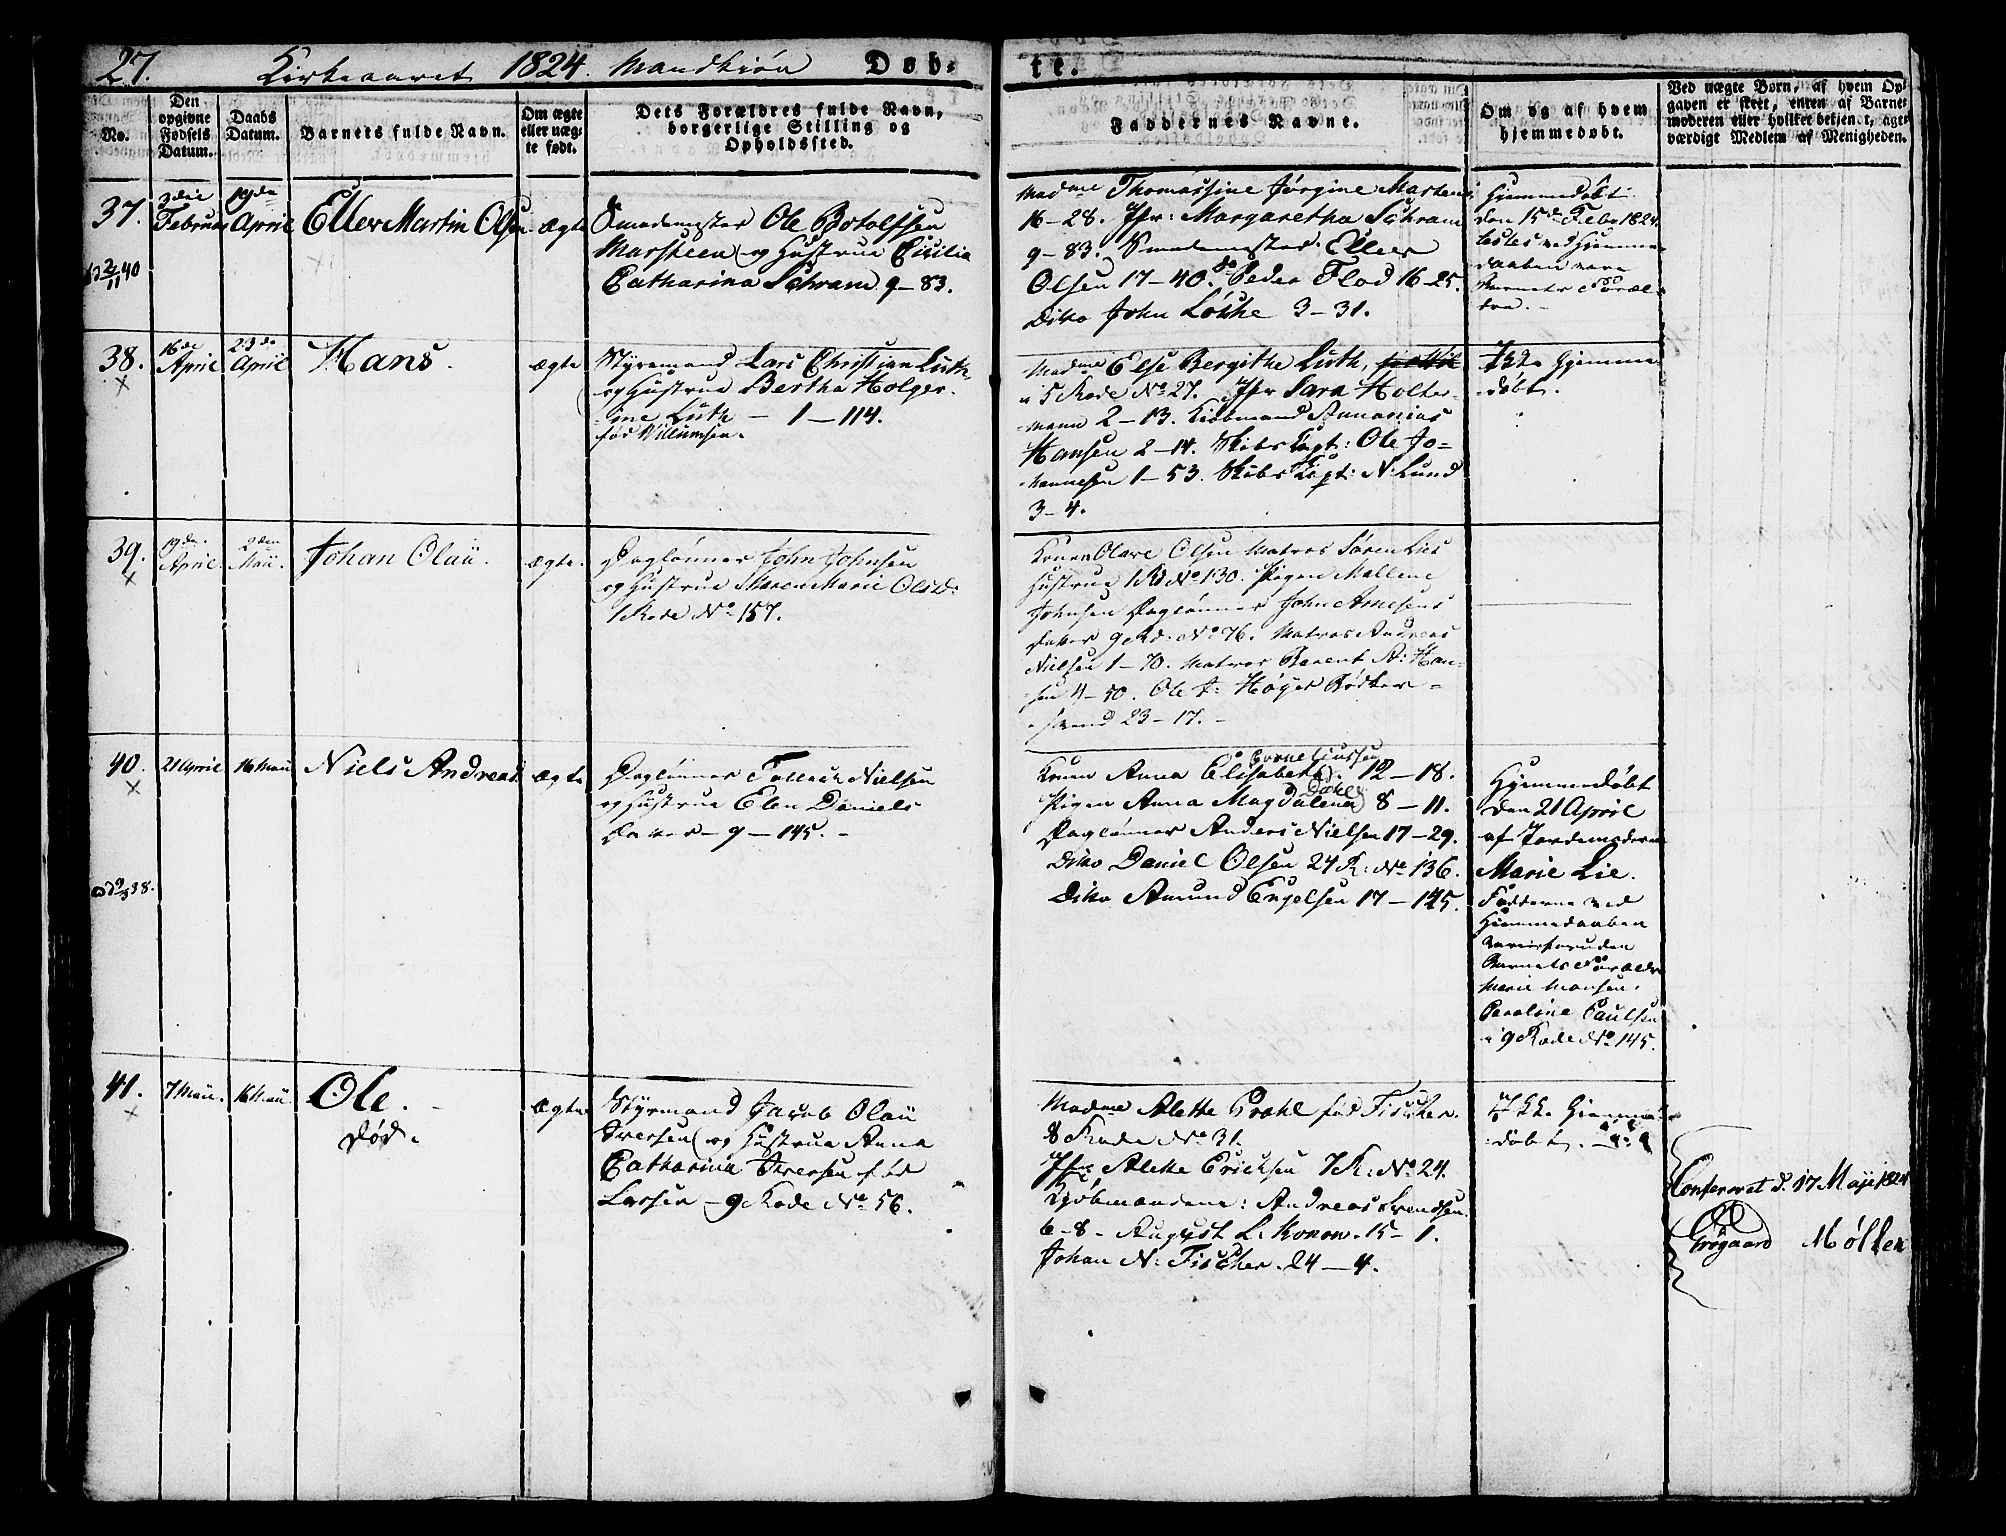 27. Kirkeaaret 1824. Mandkiøn Døb-
te.
No.
Den
opgivne
Fødsels
Datum.
Daabs
Datum.
Barnets fulde Navn.
Om ægte
eller uæg-
te født.
Dets Forældres fulde Navn,
borgerlige Stilling og
Opholdssted.
Faddernes Navne.
Om og af hvem
hjemmedøbt.
Ved uægte Børn, af hvem Op-
gaven er skeet, enten af Barne-
moderen eller hvilket betjent, agt-
værdigt Medlem af Menigheden.
37.
Februar
19de
April
Eller Martin Olsen
ægte
Smedemester Ole Botolfssen
Marsteen og Hustrue Cicilia
Catharina Schram 9-83.
Madme Thomassine Jørgine Martens
16-28. Jfr: Margaretha Schram
9-83. Smedemester Eller
Olsen 17-40. do Peder Flod 16-25.
Ditto John Løkke 3-31.
Hjemmedøbt
den 15de Febr 1824.
Testes ved Hjemme-
daaben vare
Barnets Foræl-
dre.
38.
16de
April
23de
April
Hans.
ægte
Styrmand Lars Christian Luth
og Hustrue Bertha Holger-
ine Luth - 1-114.
fød Villumsen.
Madme Else Bergithe Luth,
i 5 Rode No 27. Jfr Sara Holter-
mann 2-13. Kiøbmand Annanias
Hansen 2-14. Skibs Capt: Ole Jo-
hannesen 1-53. Skibs Capt: N: Lund
3-4.
Ikke Hjemme-
døbt.
39.
19de
April
2den
Maii.
Johan Olaii.
ægte.
Daglønner John Johnsen
og Hustrue Maren Marie Olsd:
1 Rode No 157.
Konen Olave Olsen Matros Søren Lies
Hustrue 1 Rd No 130. Pigen Mallene
Johnsen Daglønner John Arnesens
Datter 9 Rd: No 76. Matros Andreas
Nielsen 1-70. Matros Berent A: Han-
sen 4-50. Ole J: Høyer Bødker-
svend 23-17.
40.
21 April
16 Maii
Niels Andreas
ægte
Daglønner Tollach Nielsen
og Hustrue Elen Daniels
Datter - 9-145.
Konen Anna Elisabeth Corneliussen 12-18.
Pigen Anna Magdalena Dahl 8-11.
Daglønner Anders Nielsen 17-29.
Ditto Daniel Olsen 24 R: No 136.
Ditto Amund Engelsen 17-125.
Hjemmedøbt
den 21 April
af Jordemoderen
Marie Lie.
Fadderne ved
Hjemmedaaben
vare foruden
Barnets Forældre
Marie Monsen,
Caroline Paulsen
i 9 Rode No 145.
41.
7 Maii.
16 Maii.
Ole.
død.
ægte
Styrmand Jacob Olaii
Iversen og Hustrue Anna
Catharina Iversen fød
Larsen - 9 Rode No 56.
Madme Alette Prahl fød Fischer.
8 Rode No 31.
Jfr Alette Ericksen 7 R: No 24.
Kjøbmændene: Andreas Svendsen
6-8. August L: Konow. 15-1.
Johan N: Fischer. 24-4.
Ikke Hjemme-
døbt.
Confereret d. 17 Maji 1824
Grøgaard Møller